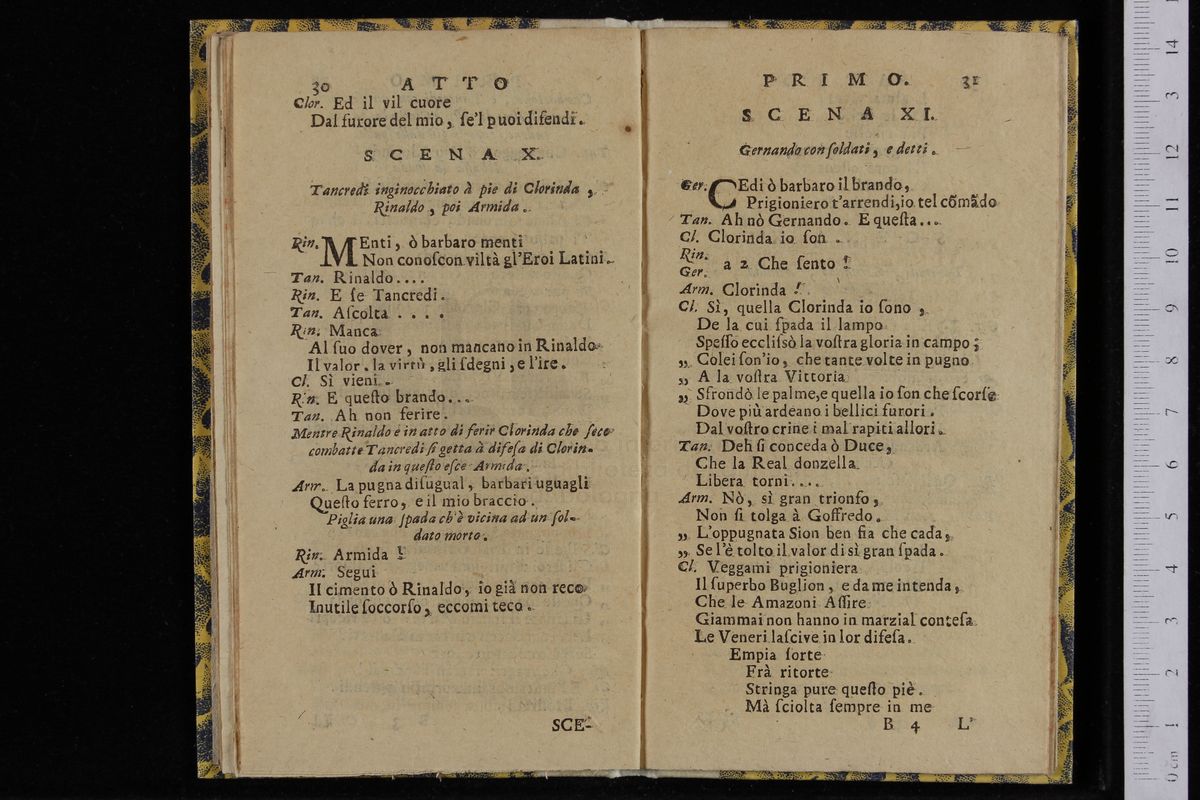 30 ATTO
Clor. Ed il vil cuore
Dal furore del mio, ſe'l puoi difendi.
SCENA X.
Tancredi inginocchiato à pie di Clorinda,
Rinaldo, poi Armida.
Rin. MEnti, ò barbaro menti
Non conoſcon viltà gl'Eroi Latini.
Tan. Rinaldo....
Rin. E ſe Tancredi.
Tan. Aſcolta . . . .
Rin. Manca
Al ſuo dover, non mancano in Rinaldo
Il valor, la virtù, gli ſdegni, e l'ire.
Cl. Sì vieni.
Rin. E queſto brando...
Tan. Ah non ferire.
Mentre Rinaldo è in atto di ferir Clorinda che ſeco
combatte Tancredi ſi getta à difeſa di Clorin-
da in queſto eſce Armida.
Arm. La pugna diſugual, barbari uguagli
Queſto ferro, e il mio braccio.
Piglia una ſpada ch'è vicina ad un ſol-
dato morto.
Rin. Armida!
Arm. Segui
Il cimento ò Rinaldo, io già non reco
Inutile ſoccorſo, eccomi teco.
SCE-
PRIMO. 31
SCENA XI.
Gernando con ſoldati, e detti.
Ger. CEdi ò barbaro il brando,
Prigioniero t'arrendi, io tel cõmãdo
Tan. Ah nò Gernando. E queſta...
Cl. Clorinda io ſon.
Rin.
Ger. a 2 Che ſento!
Arm. Clorinda!
Cl. Sì, quella Clorinda io ſono,
De la cui ſpada il lampo
Speſſo eccliſsò la voſtra gloria in campo;
„ Colei ſon'io, che tante volte in pugno
„ A la voſtra Vittoria
„ Sfrondò le palme, e quella io ſon che ſcorſe
Dove più ardeano i bellici furori.
Dal voſtro crine i mal rapiti allori.
Tan. Deh ſi conceda ò Duce,
Che la Real donzella
Libera torni....
Arm. Nò, sì gran trionfo,
Non ſi tolga à Goffredo.
„ L'oppugnata Sion ben fia che cada,
„ Se l'è tolto il valor di sì gran ſpada.
Cl. Veggami prigioniera
Il ſuperbo Buglion, e da me intenda,
Che le Amazoni Aſſire
Giammai non hanno in marzial conteſa
Le Veneri laſcive in lor difeſa.
Empia ſorte
Frà ritorte
Stringa pure queſto piè.
Mà ſciolta ſempre in me
B 4 L'